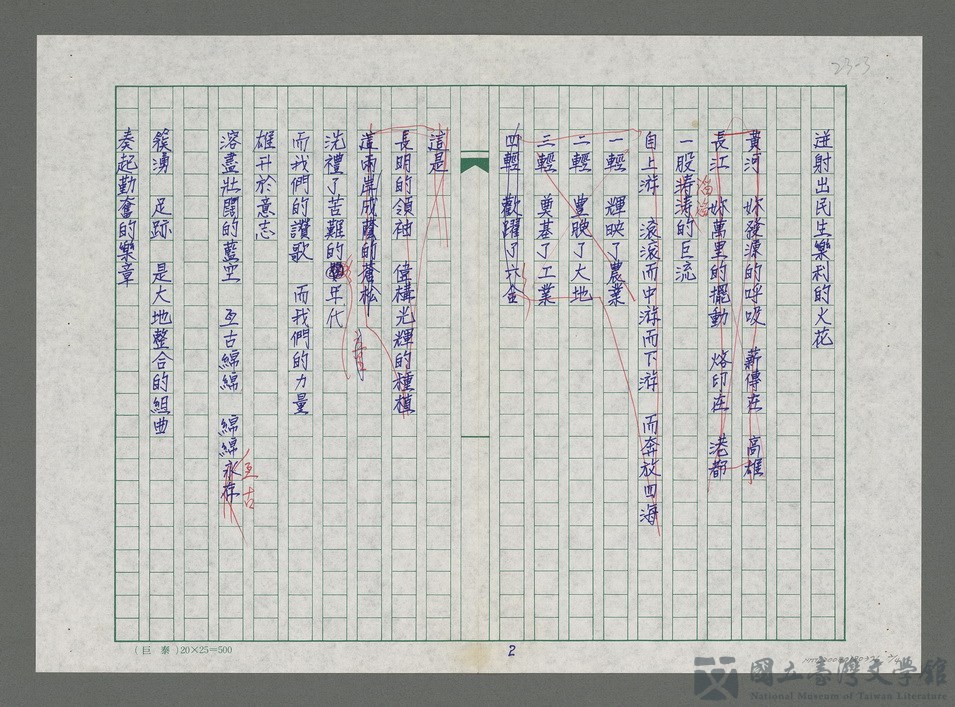 23-3
迸射出民生樂利的火花
黃河　妳發源的呼吸　薪傳在　高雄
長江　妳萬里的擺動　烙印在　港都
一股濤濤的巨流
滔滔
自上游　滾滾而中游而下游　而奔放四海
一輕　輝映了農業
二輕　豐腴了大地
三輕　奠基了工業
四輕　歡躍了六合
這是
長明的領袖　偉構光輝的種植
這兩岸成蔭的蒼松
洗禮了苦難的年代
而我們的讚歌　而我們的力量
雄升於意志
溶盡壯闊的藍空　亙古綿綿　綿綿永存
亙古
簇湧　足跡　是大地整合的組曲
奏起勤奮的樂章
(巨泰)20×25=500
2
國立臺灣文學館
National Museum of Taiwan Literature